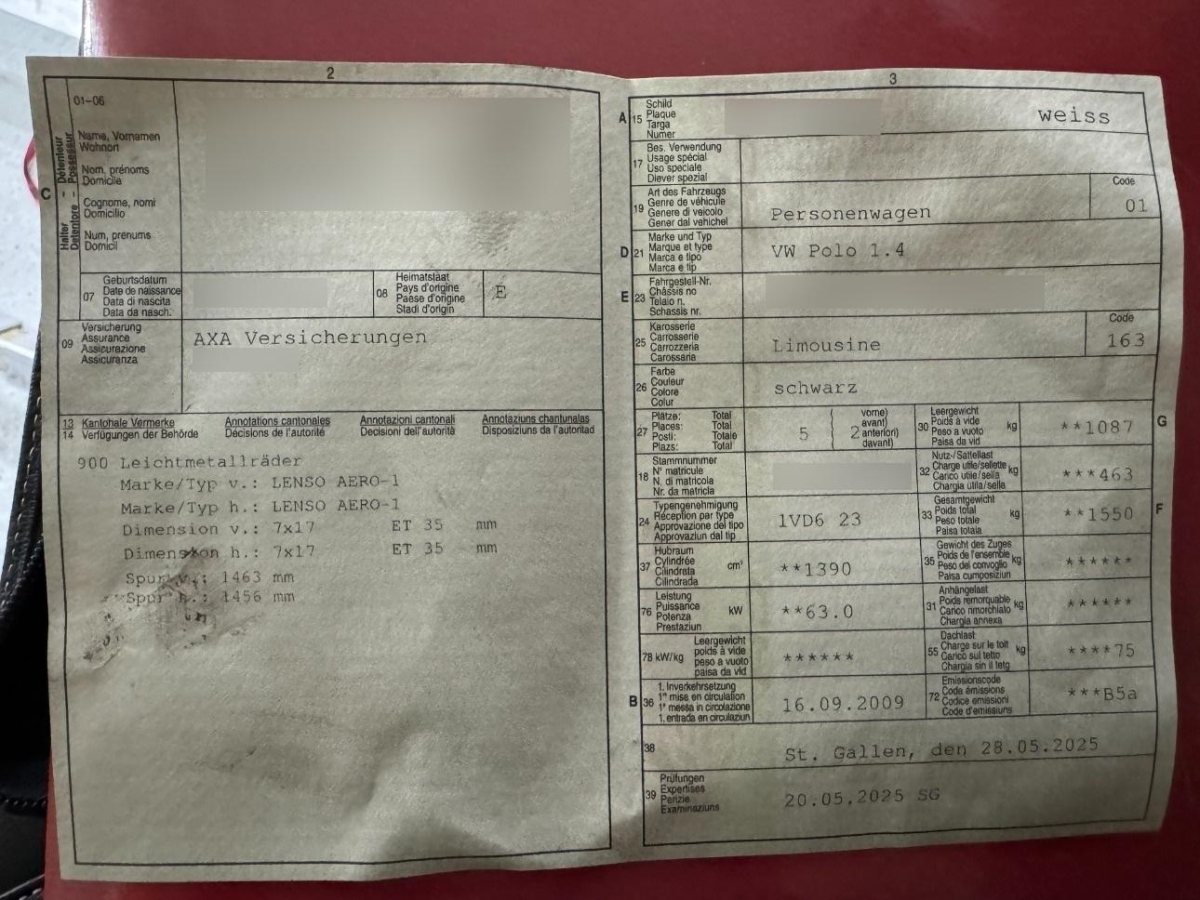 2
01-06
C
Halter – Détenteur
Detentore – Possessur
Name, Vornamen
Wohnort
Nom, prénoms
Domicile
Cognome, nomi
Domicilio
Num, prenums
Domicil
07
Geburtsdatum
Date de naissance
Data di nascita
Data da nasch.
08
Heimatstaat
Pays d'origine
Paese d'origine
Stadi d'origin
E
09
Versicherung
Assurance
Assicurazione
Assicuranza
AXA Versicherungen
13 Kantonale Vermerke Annotations cantonales Annotazioni cantonali Annotaziuns chantunalas
14 Verfügungen der Behörde Décisions de l'autorité Decisioni dell'autorità Disposiziuns da l'autoritad
900 Leichtmetallräder
Marke/Typ v.: LENSO AERO-1
Marke/Typ h.: LENSO AERO-1
Dimension v.: 7x17 ET 35 mm
Dimension h.: 7x17 ET 35 mm
Spur v.: 1463 mm
Spur h.: 1456 mm
3
A 15
Schild
Plaque
Targa
Numer
weiss
17
Bes. Verwendung
Usage spécial
Uso speciale
Diever spezial
19
Art des Fahrzeugs
Genre de véhicule
Genere di veicolo
Gener dal vehichel
Personenwagen
Code
01
D 21
Marke und Typ
Marque et type
Marca e tipo
Marca e tip
VW Polo 1.4
E 23
Fahrgestell-Nr.
Châssis no
Telaio n.
Schassis nr.
25
Karosserie
Carrosserie
Carrozzeria
Carossaria
Limousine
Code
163
26
Farbe
Couleur
Colore
Colur
schwarz
27
Plätze: Total
Places: Total
Posti: Totale
Plazs: Total
5
2
vorne)
avant)
anteriori)
davant)
30
Leergewicht
Poids à vide
Peso a vuoto
Paisa da vid
kg
**1087
G
18
Stammnummer
N° matricule
N. di matricola
Nr. da matricla
32
Nutz-/Sattellast
Charge utile/sellette
Carico utile/sella
Chargia utila/sella
kg
***463
24
Typengenehmigung
Réception par type
Approvazione del tipo
Approvaziun dal tip
1VD6 23
33
Gesamtgewicht
Poids total
Peso totale
Paisa totala
kg
**1550
F
37
Hubraum
Cylindrée
Cilindrata
Cilindrada
cm³
**1390
35
Gewicht des Zuges
Poids de l'ensemble
Peso del convoglio
Paisa cumposiziun
kg
******
76
Leistung
Puissance
Potenza
Prestaziun
kW
**63.0
31
Anhängelast
Poids remorquable
Carico rimorchiato
Chargia annexa
kg
******
78 kW/kg
Leergewicht
poids à vide
peso a vuoto
paisa da vid
******
55
Dachlast
Charge sur le toit
Carico sul tetto
Chargia sin il tetg
kg
****75
B 36
1. Inverkehrsetzung
1re mise en circulation
1a messa in circolazione
1. entrada en circulaziun
16.09.2009
72
Emissionscode
Code émissions
Codice emissioni
Code d'emissiuns
***B5a
38
St. Gallen, den 28.05.2025
39
Prüfungen
Expertises
Perizie
Examinaziuns
20.05.2025 SG